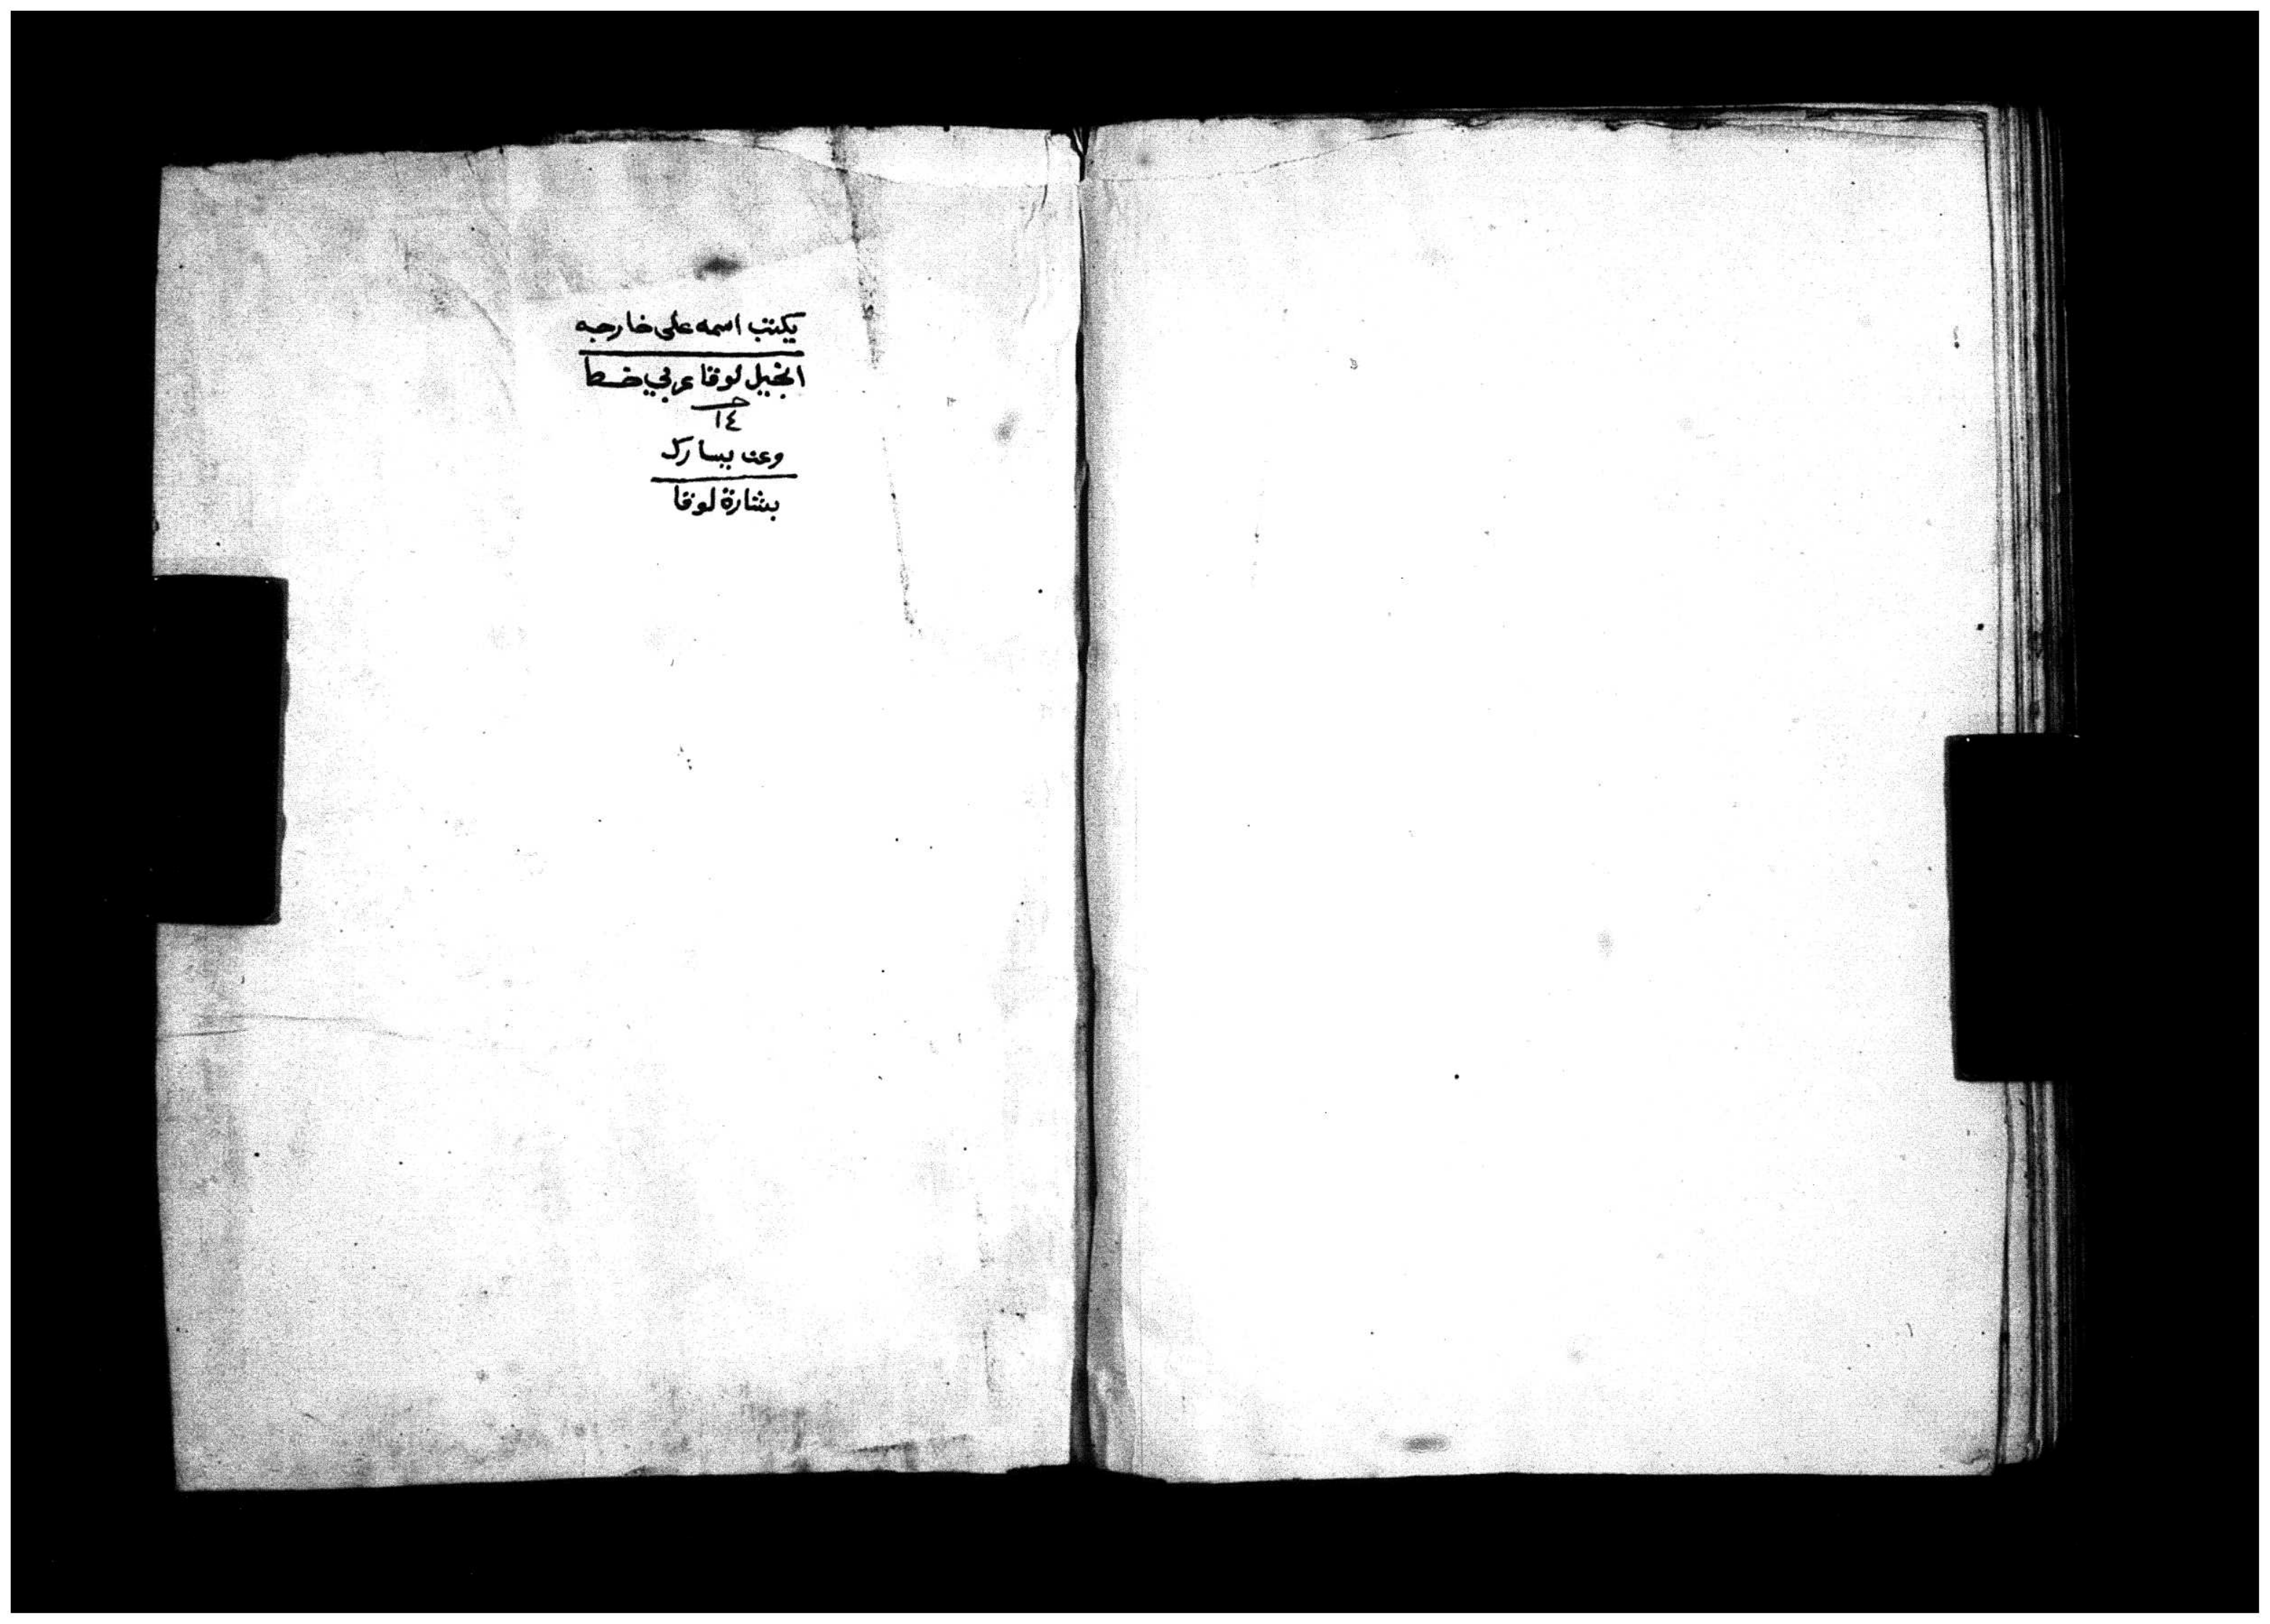 يكتب اسمه على خارجه
انجيل لوقا عربي خط
١٤
وعن يساره
بشارة لوقا